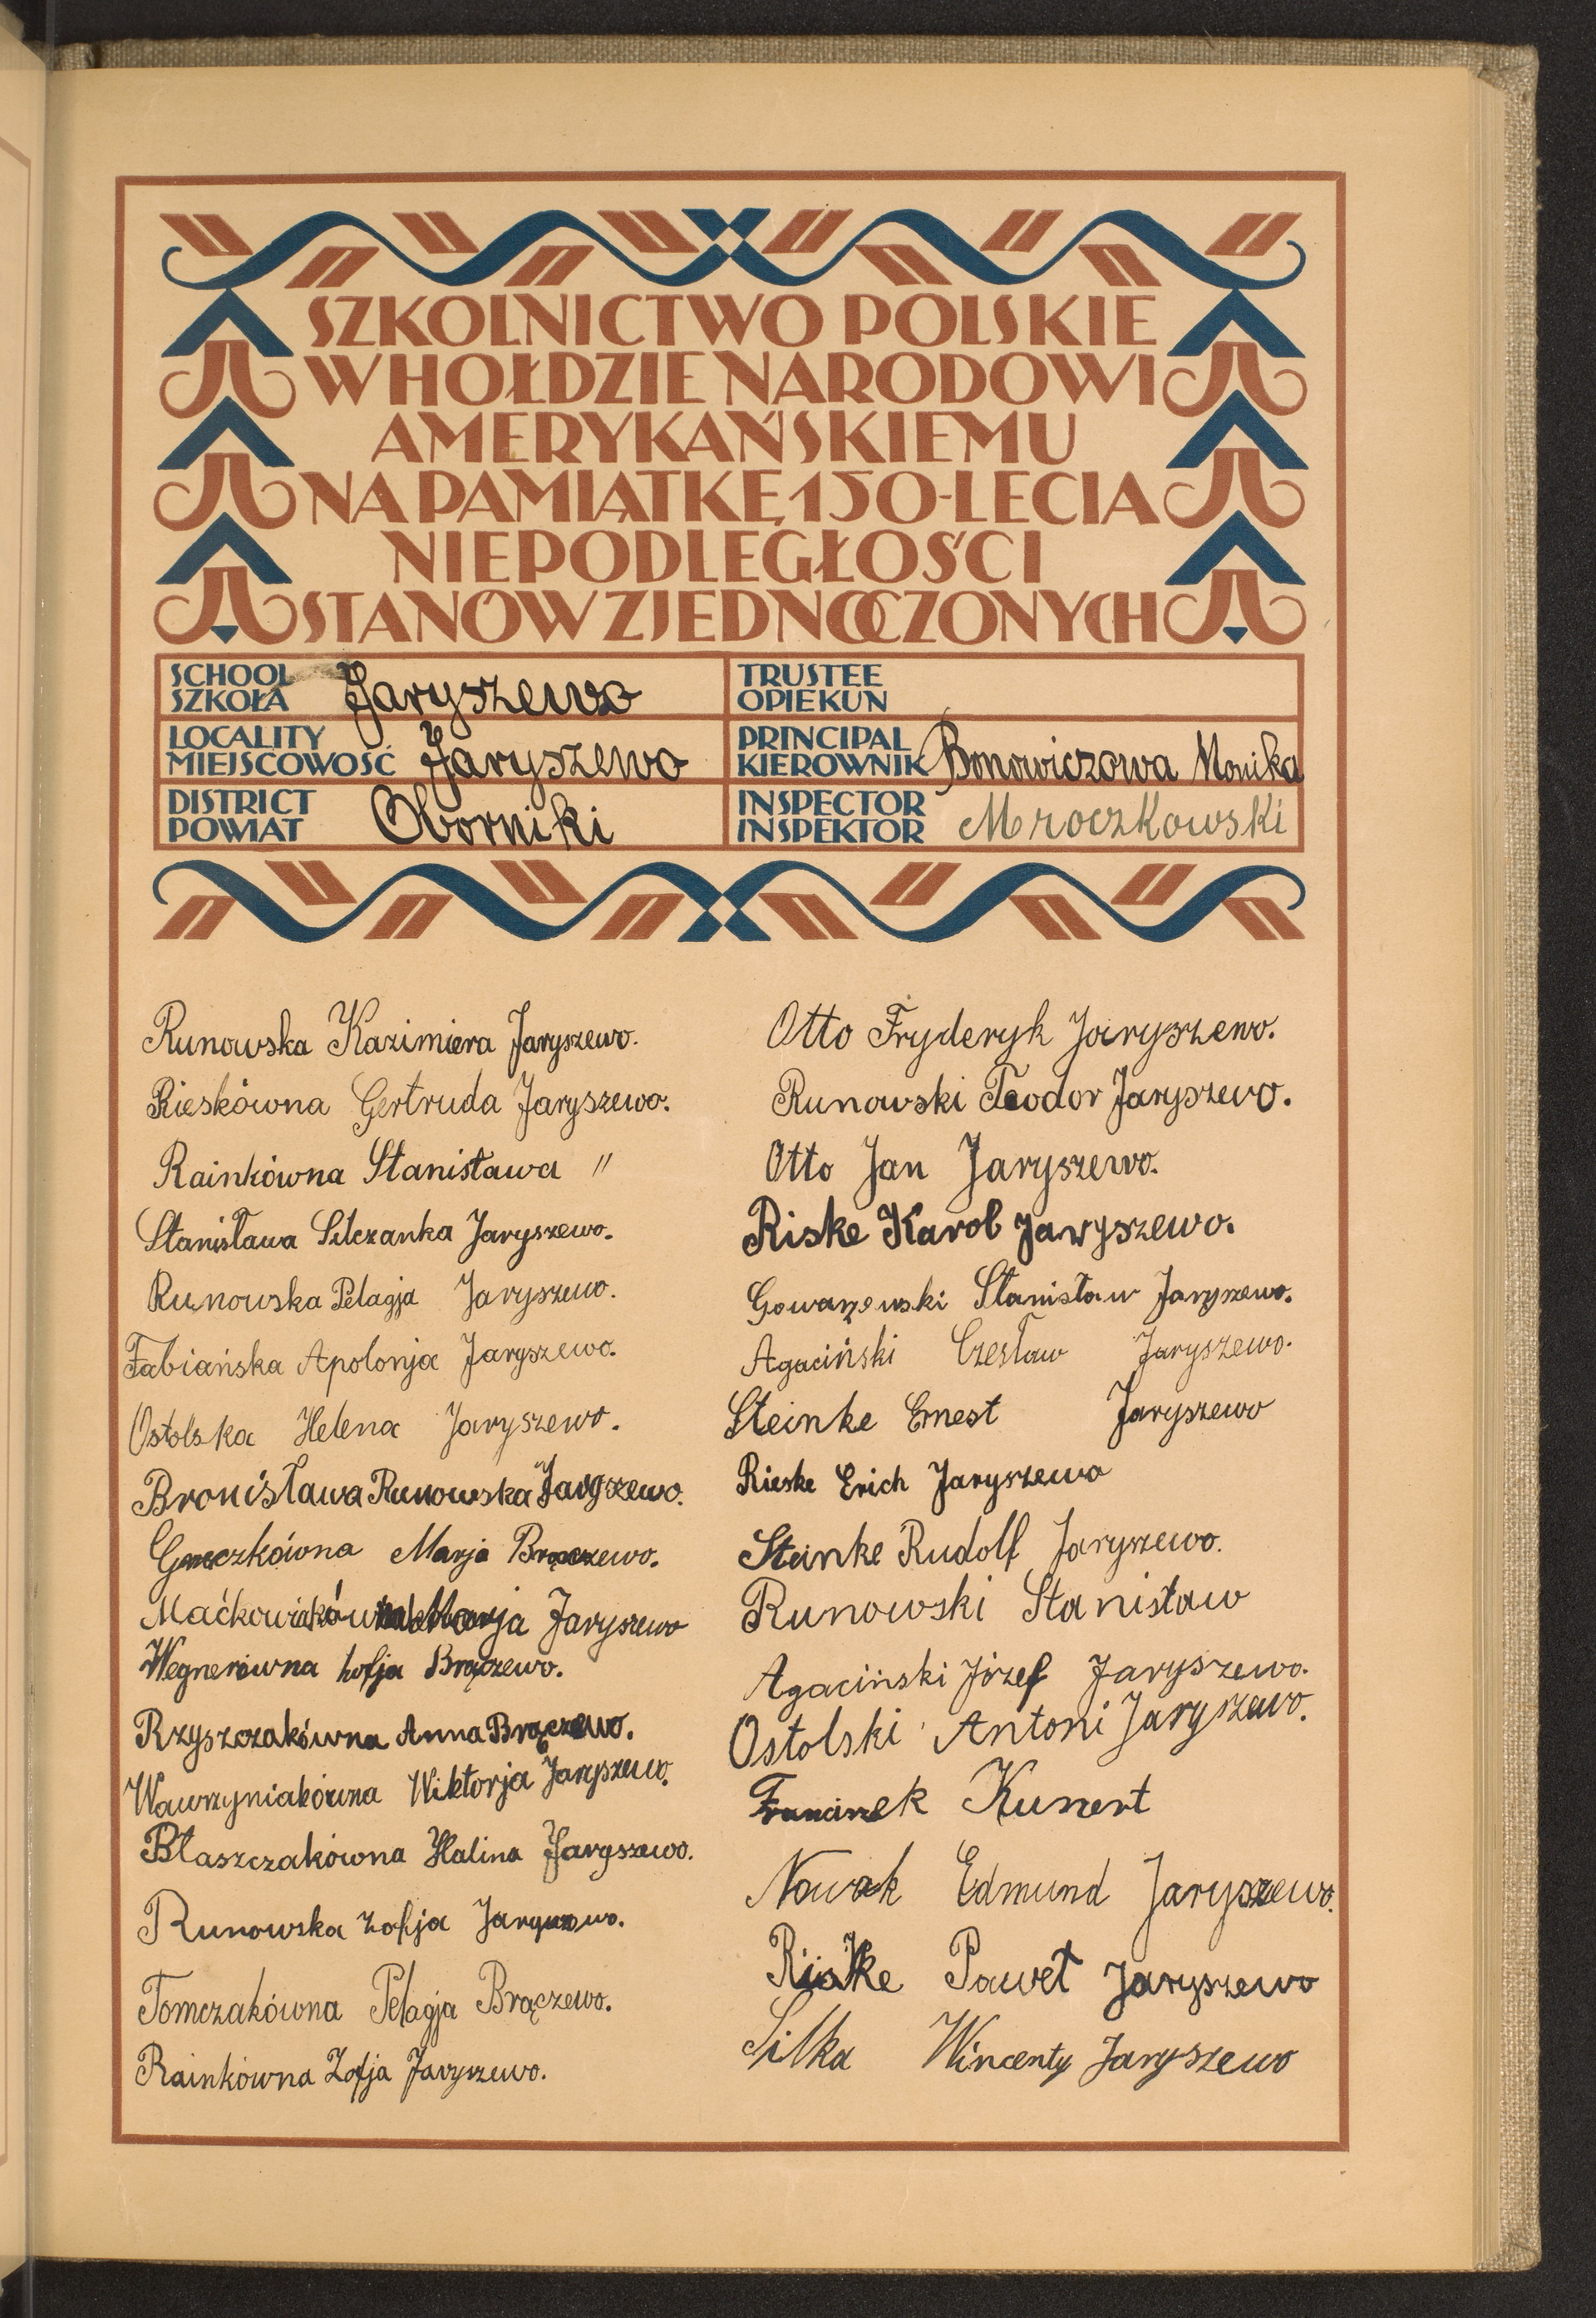 SZKOLNICTWO POLSKIE
W HOŁDZIE NARODOWI
AMERYKAŃSKIEMU
NA PAMIĄTKĘ 150-LECIA
NIEPODLEGŁOŚCI
STANÓW ZJEDNOCZONYCH
SCHOOL
SZKOŁA Jaryszewo
LOCALITY
MIEJSCOWOŚĆ Jaryszewo
DISTRICT
POWIAT Oborniki
TRUSTEE
OPIEKUN
PRINCIPAL
KIEROWNIK Bonowiczowa Monika
INSPECTOR
INSPEKTOR Mroczkowski
Runowska Kazimiera Jaryszewo.
Rieskówna Gertruda Jaryszewo.
Rainkówna Stanisława "
Stanisława Jaryszewo.
Runowska Pelagja Jaryszewo.
Fabiańska Apolonja Jaryszewo.
Ostolska Helena Jaryszewo.
Bronisława Runowska Jaryszewo.
Marja Brączewo.
Maćkowiakówna Marja Jaryszewo
Wegnerówna Zofja Brączewo.
Rzyszczakówna Anna Brączewo.
Wawrzyniakówna Wiktorja Jaryszewo.
Błaszczakówna Halina Jaryszewo.
Runowska Zofja Jaryszewo.
Tomczakówna Pelagja Brączewo.
Rainkówna Zofja Jaryszewo.
Otto Fryderyk Jaryszewo.
Runowski Teodor Jaryszewo.
Otto Jan Jaryszewo.
Riske Karol Jaryszewo.
Gowarzewski Stanisław Jaryszewo.
Agaciński Czesław Jaryszewo.
Steinke Ernest Jaryszewo
Rieske Erich Jaryszewo
Steinke Rudolf Jaryszewo.
Runowski Stanisław
Agaciński Józef Jaryszewo.
Ostolski Antoni Jaryszewo.
Franciszek Kunert
Nowak Edmund Jaryszewo.
Riske Paweł Jaryszewo
Silka Wincenty Jaryszewo